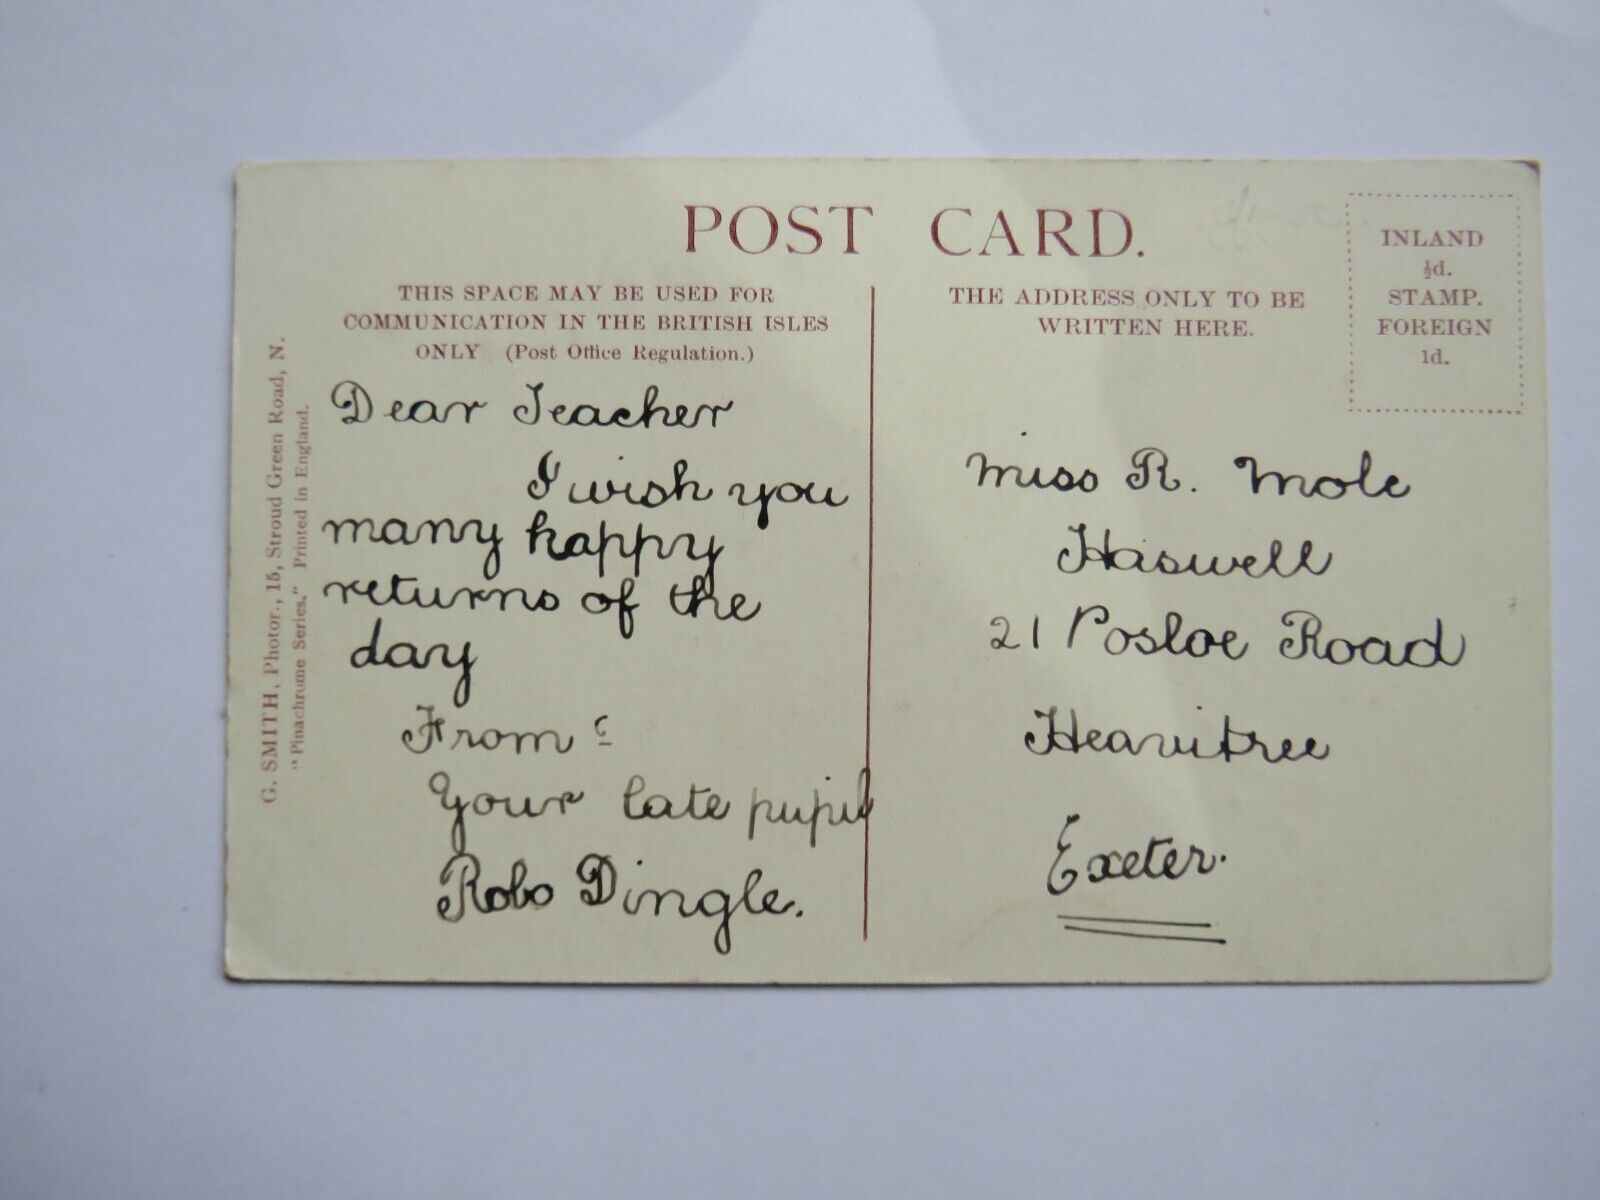 POST CARD.
THIS SPACE MAY BE USED FOR
COMMUNICATION IN THE BRITISH ISLES
ONLY (Post Office Regulation.)
Dear Teacher
I wish you
many happy
returns of the
day
From
Your late pupil
Robo Dingle.
THE ADDRESS ONLY TO BE
WRITTEN HERE.
INLAND
½d.
STAMP.
FOREIGN
1d.
Miss R. Mole
Haswell
21 Posloe Road
Heavitree
Exeter.
G. SMITH, Photor., 15, Stroud Green Road, N.
"Pinachrome Series." Printed in England.